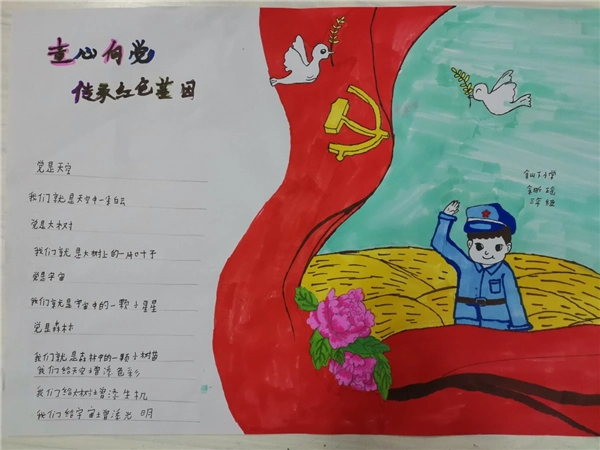 童心向党
传承红色基因
党是天空
我们就是天空中一朵白云
党是大树
我们就是大树上的一片叶子
党是宇宙
我们就是宇宙中的一颗小星星
党是森林
我们就是森林中的一颗小树苗
我们给天空增添色彩
我们给大树增添生机
我们给宇宙增添光明